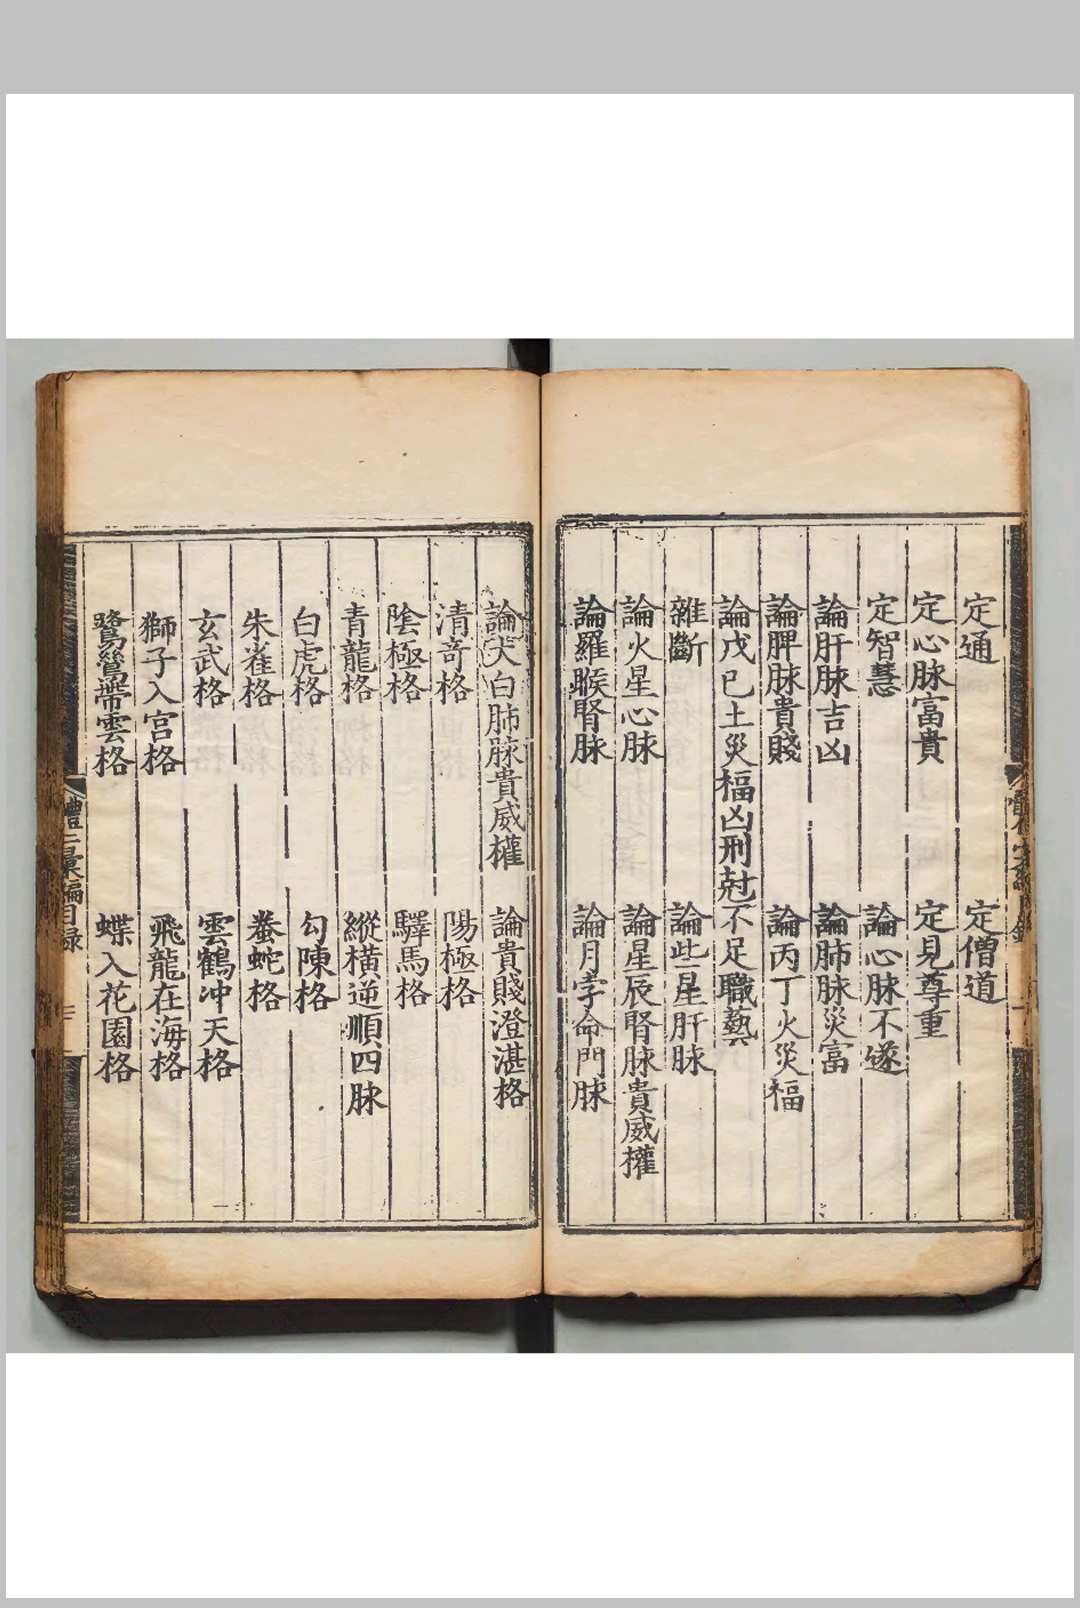 定通 定僧道
定心脉富貴 定見尊重
定智慧 論心脉不遂
論肝脉吉凶 論肺脉災富
論脾脉貴賤 論丙丁火災福
論戊己土災福凶刑尅不足職藝
雜斷 論些星肝脉
論火星心脉 論星辰腎脉貴威權
論羅睺腎脉 論月孛命門脉
論太白肺脉貴威權 論貴賤澄湛格
清奇格 陽極格
陰極格 驛馬格
青龍格 縱橫逆順四脉
白虎格 勾陳格
朱雀格 螣蛇格
玄武格 雲鶴冲天格
獅子入宮格 飛龍在海格
鷺鷥帶雲格 蝶入花園格
彙編目録